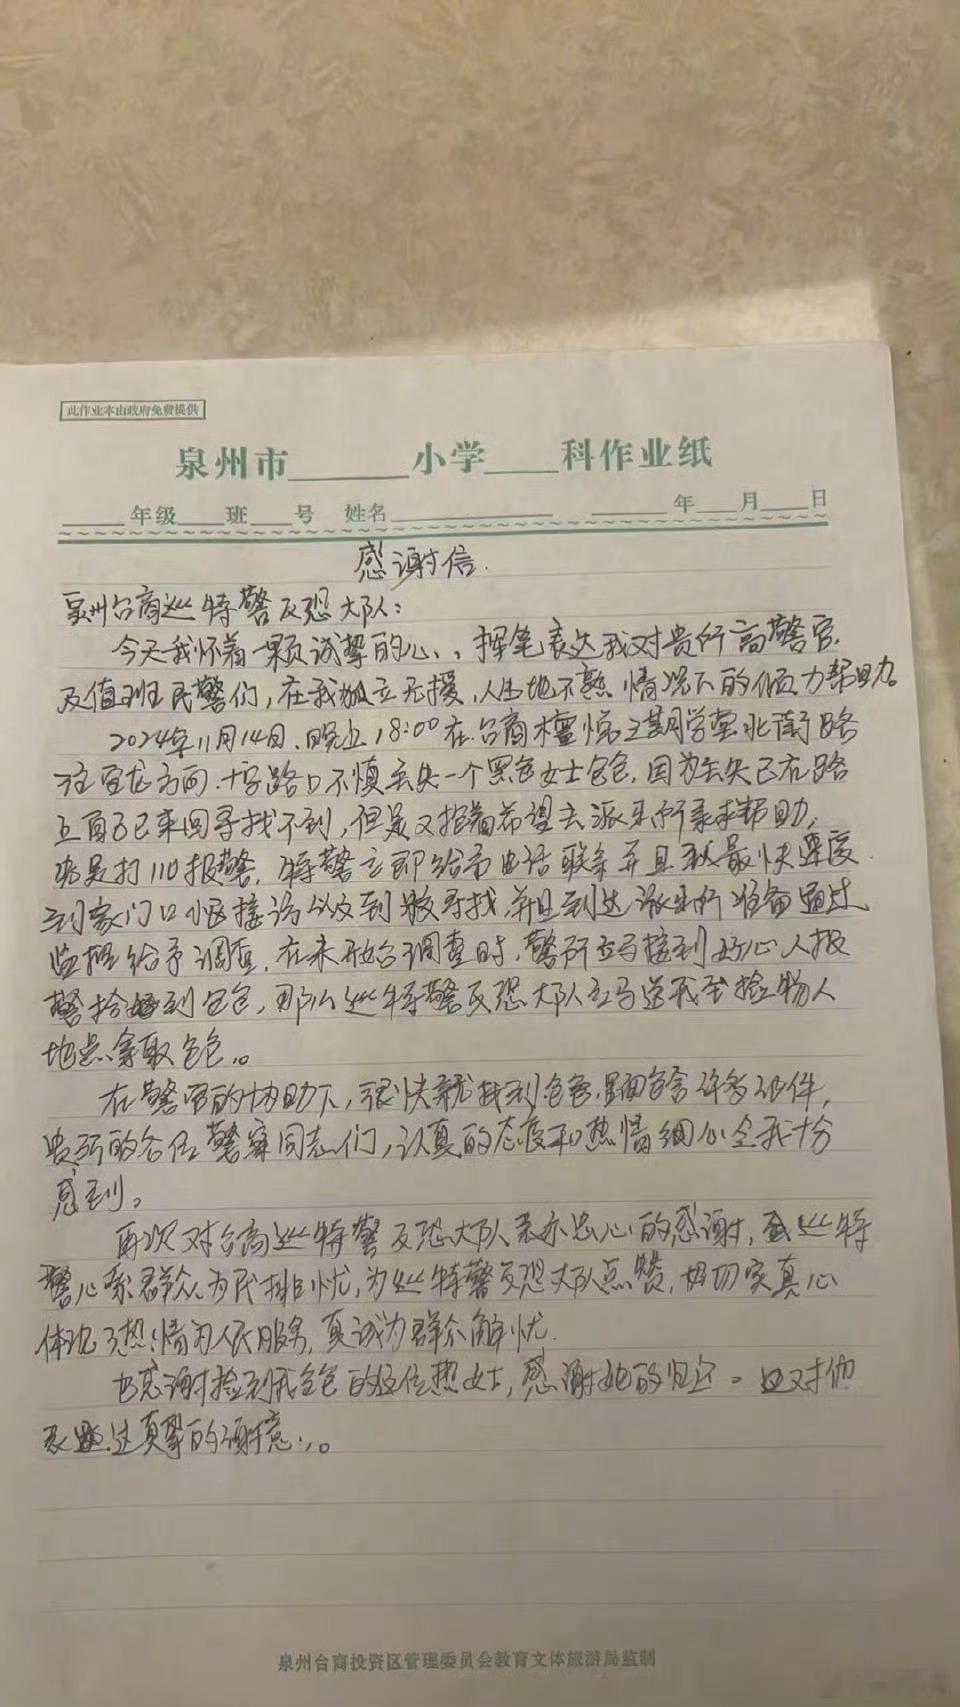 此作业本由政府免费提供
泉州市 小学 科作业纸
年级 班 号 姓名 年 月 日
感谢信.
泉州台商巡特警反恐大队：
今天我怀着一颗诚挚的心、，挥笔表达我对贵所高警官
及值班民警们，在我孤立无援，人生地不熟情况下的倾力帮助。
2024年11月14日.晚上18:00在台商檀悦三期学堂北街路
往宝龙方向.十字路口不慎丢失一个黑色女士包包，因为丢失已在路
上自己已来回寻找不到，但是又抱着希望去派出所寻求帮助，
于是打110报警，特警立即给予电话联系并且最快速度
到家门口小区接访以及到寻找，并且到达派出所准备通过
监控给予调查，在未开始调查时，警所立马接到好心人报
警捡到包包，那么巡特警反恐大队立马送我至捡物人
地点拿取包包。
在警官的协助下，很快就找到包包，里面包含许多证件，
贵所的各位警察同志们，认真的态度和热情细心令我十分
感到。
再次对台商巡特警反恐大队表示忠心的感谢，巡特
警心系群众为民排忧，为巡特警反恐大队点赞，切实真心
体现了热情为人民服务，真诚为群众解忧.
也感谢捡到我包包的这位热女士，感谢她的归还。对他
表达真挚的谢意.，。
泉州台商投资区管理委员会教育文体旅游局监制